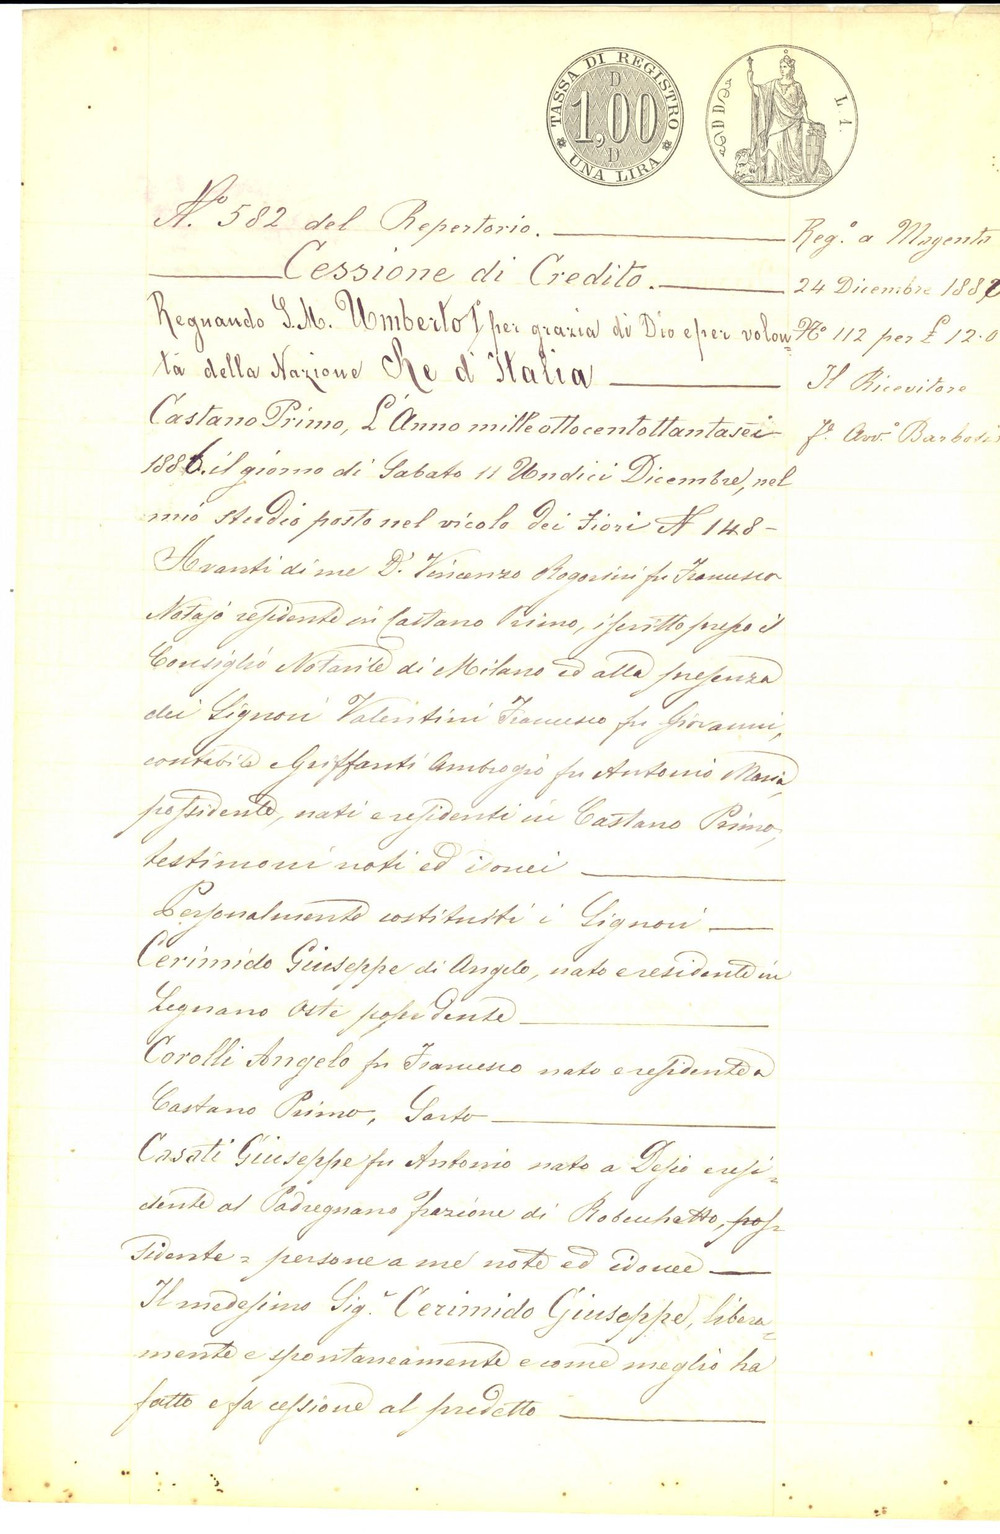 TASSA DI REGISTRO
D
1,00
D
UNA LIRA
D D
L. 1.
N.° 582 del Repertorio.
Cessione di Credito.
Regnando S.M. Umberto I per grazia di Dio e per volon=
tà della Nazione Re d'Italia
Castano Primo, L'Anno mille ottocentottantasei
1886. il giorno di Sabato 11 Undici Dicembre, nel
mio studio posto nel vicolo dei Fiori N 148 -
Avanti di me D.r Vincenzo Rogorini fu Francesco
Notajo residente in Castano Primo, iscritto presso il
Consiglio Notarile di Milano ed alla presenza
dei Signori Valentini Francesco fu Giovanni,
contabile e Griffanti Ambrogio fu Antonio Maria,
possidente, nati e residenti in Castano Primo,
testimoni noti ed idonei
Personalmente costituiti i Signori
Cerimido Giuseppe di Angelo, nato e residente in
Legnano Oste possidente
Corolli Angelo fu Francesco nato e residente a
Castano Primo, Sarto
Casati Giuseppe fu Antonio nato a Desio e resi=
dente al Padregnano frazione di Robecchetto, pos=
sidente = persone a me note ed idonee
Il medesimo Sig.r Cerimido Giuseppe, libera=
mente e spontaneamente e come meglio ha
fatto e fa cessione al predetto
Reg.° a Magenta
24 Dicembre 188
N° 112 per £ 12.0
Il Ricevitore
F.° Avv.°